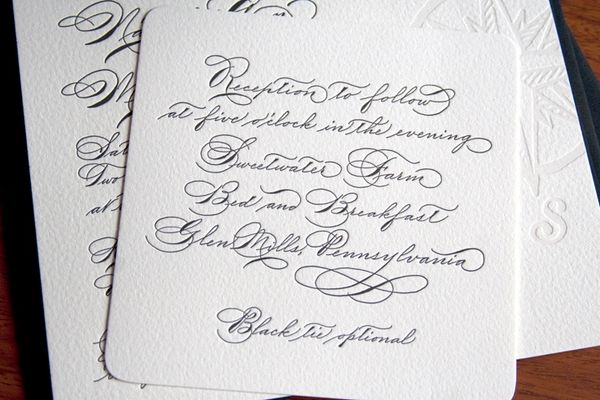 Reception to follow
at five o'clock in the evening
Sweetwater Farm
Bed and Breakfast
Glen Mills, Pennsylvania
Black tie optional
S